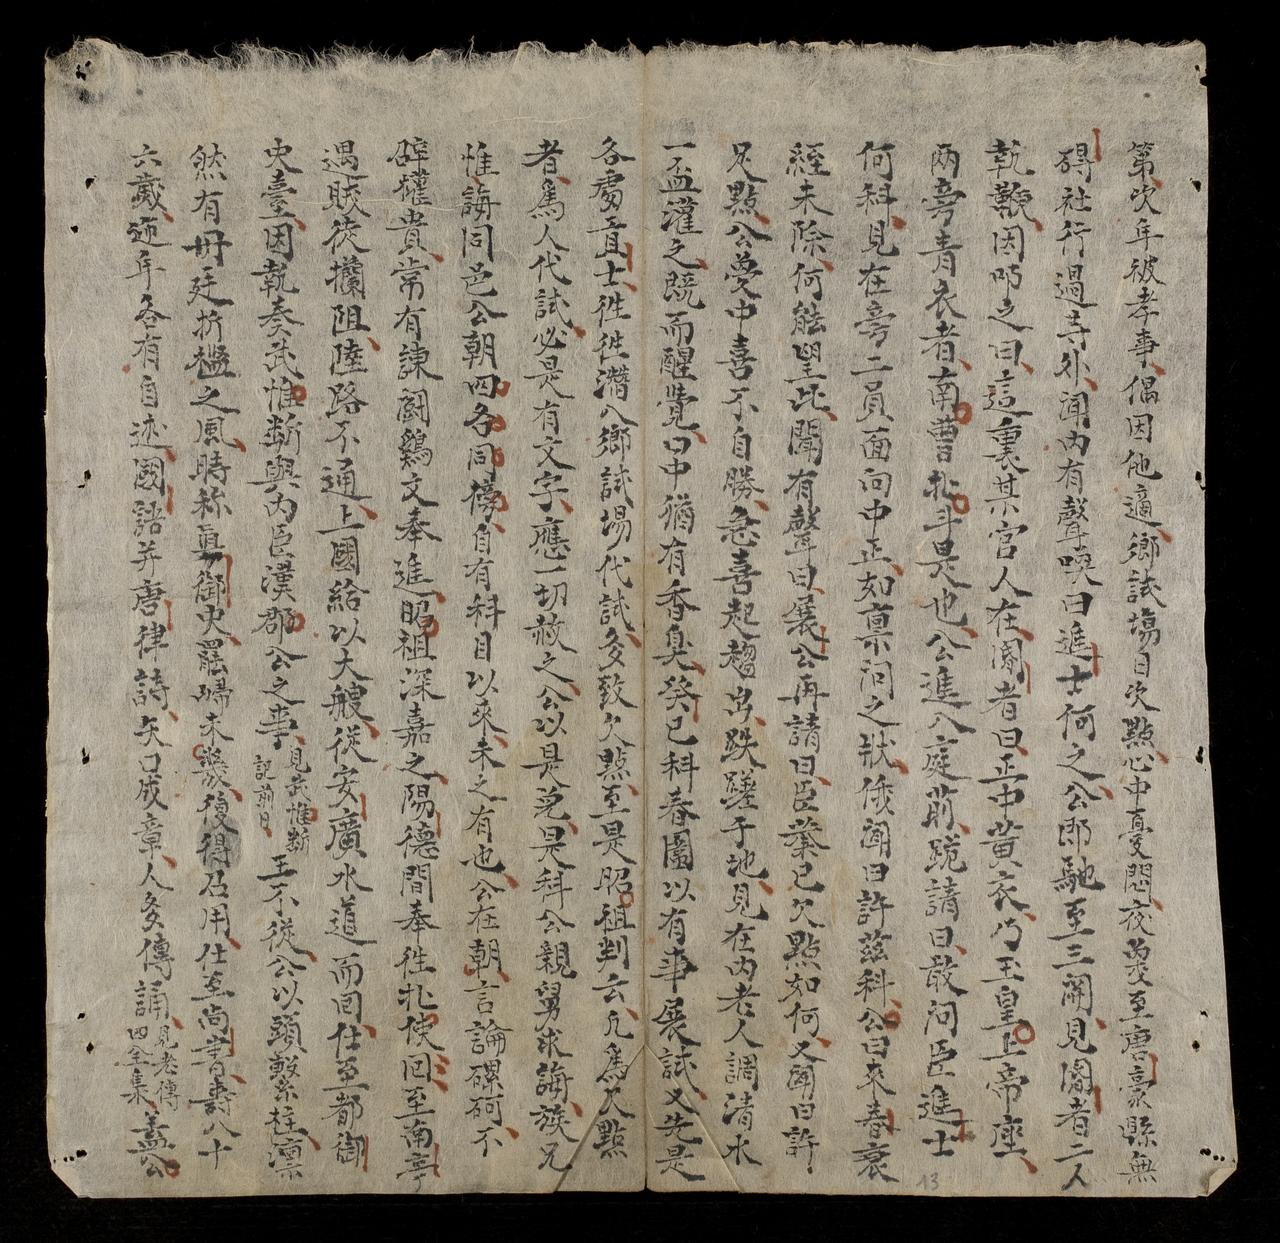 第次年被孝事偶因他適鄉試塲目次點心中憂悶夜夢至唐豪縣無
碍社行過寺外聞内有聲喚曰進士何之公即馳至三関見閽者二人
執鞭因叩之曰這裏某宫人在閽者曰正中黄衣乃玉皇上帝座
兩旁青衣者南曹北斗是也公進入庭前跪請曰敢问臣進士
何科見在旁二員面向中正如禀问之狀俄聞曰許兹科公曰來春衰
經未除何能望比聞有聲曰展公再請曰臣業已欠點如何又聞曰許
足點公夢中喜不自勝急喜起趨出跌蹉于地見在内老人調清水
一盃灌之既而醒覺口中猶有香臭癸已科春圍以有事展試又先是
各處貢士徃徃潛入鄉試塲代試多致欠點至是昭祖判云凡爲欠點
者爲人代試必是有文字應一切赦之公以是免是科公親舅求誨族兄
惟誨同邑公朝四名同榜自有科目以來未之有也公在朝言論磥砢不
辟權貴常有諫闘鷄文奉進昭祖深嘉之陽德間奉徃北使回至南寧
遇賊徒攔阻陸路不通上國給以大艘從安廣水道而囬仕至都御
史臺因執奏武惟断與内臣漢郡公之事見武惟断記前日王不從公以頭繫柱凛
然有毋廷折檻之風時称真御史罷歸未幾復得召用仕至尚書壽八十
六歲迎年各有自述國語并唐律詩矢口成章人多傳誦見老傳四全集盖公